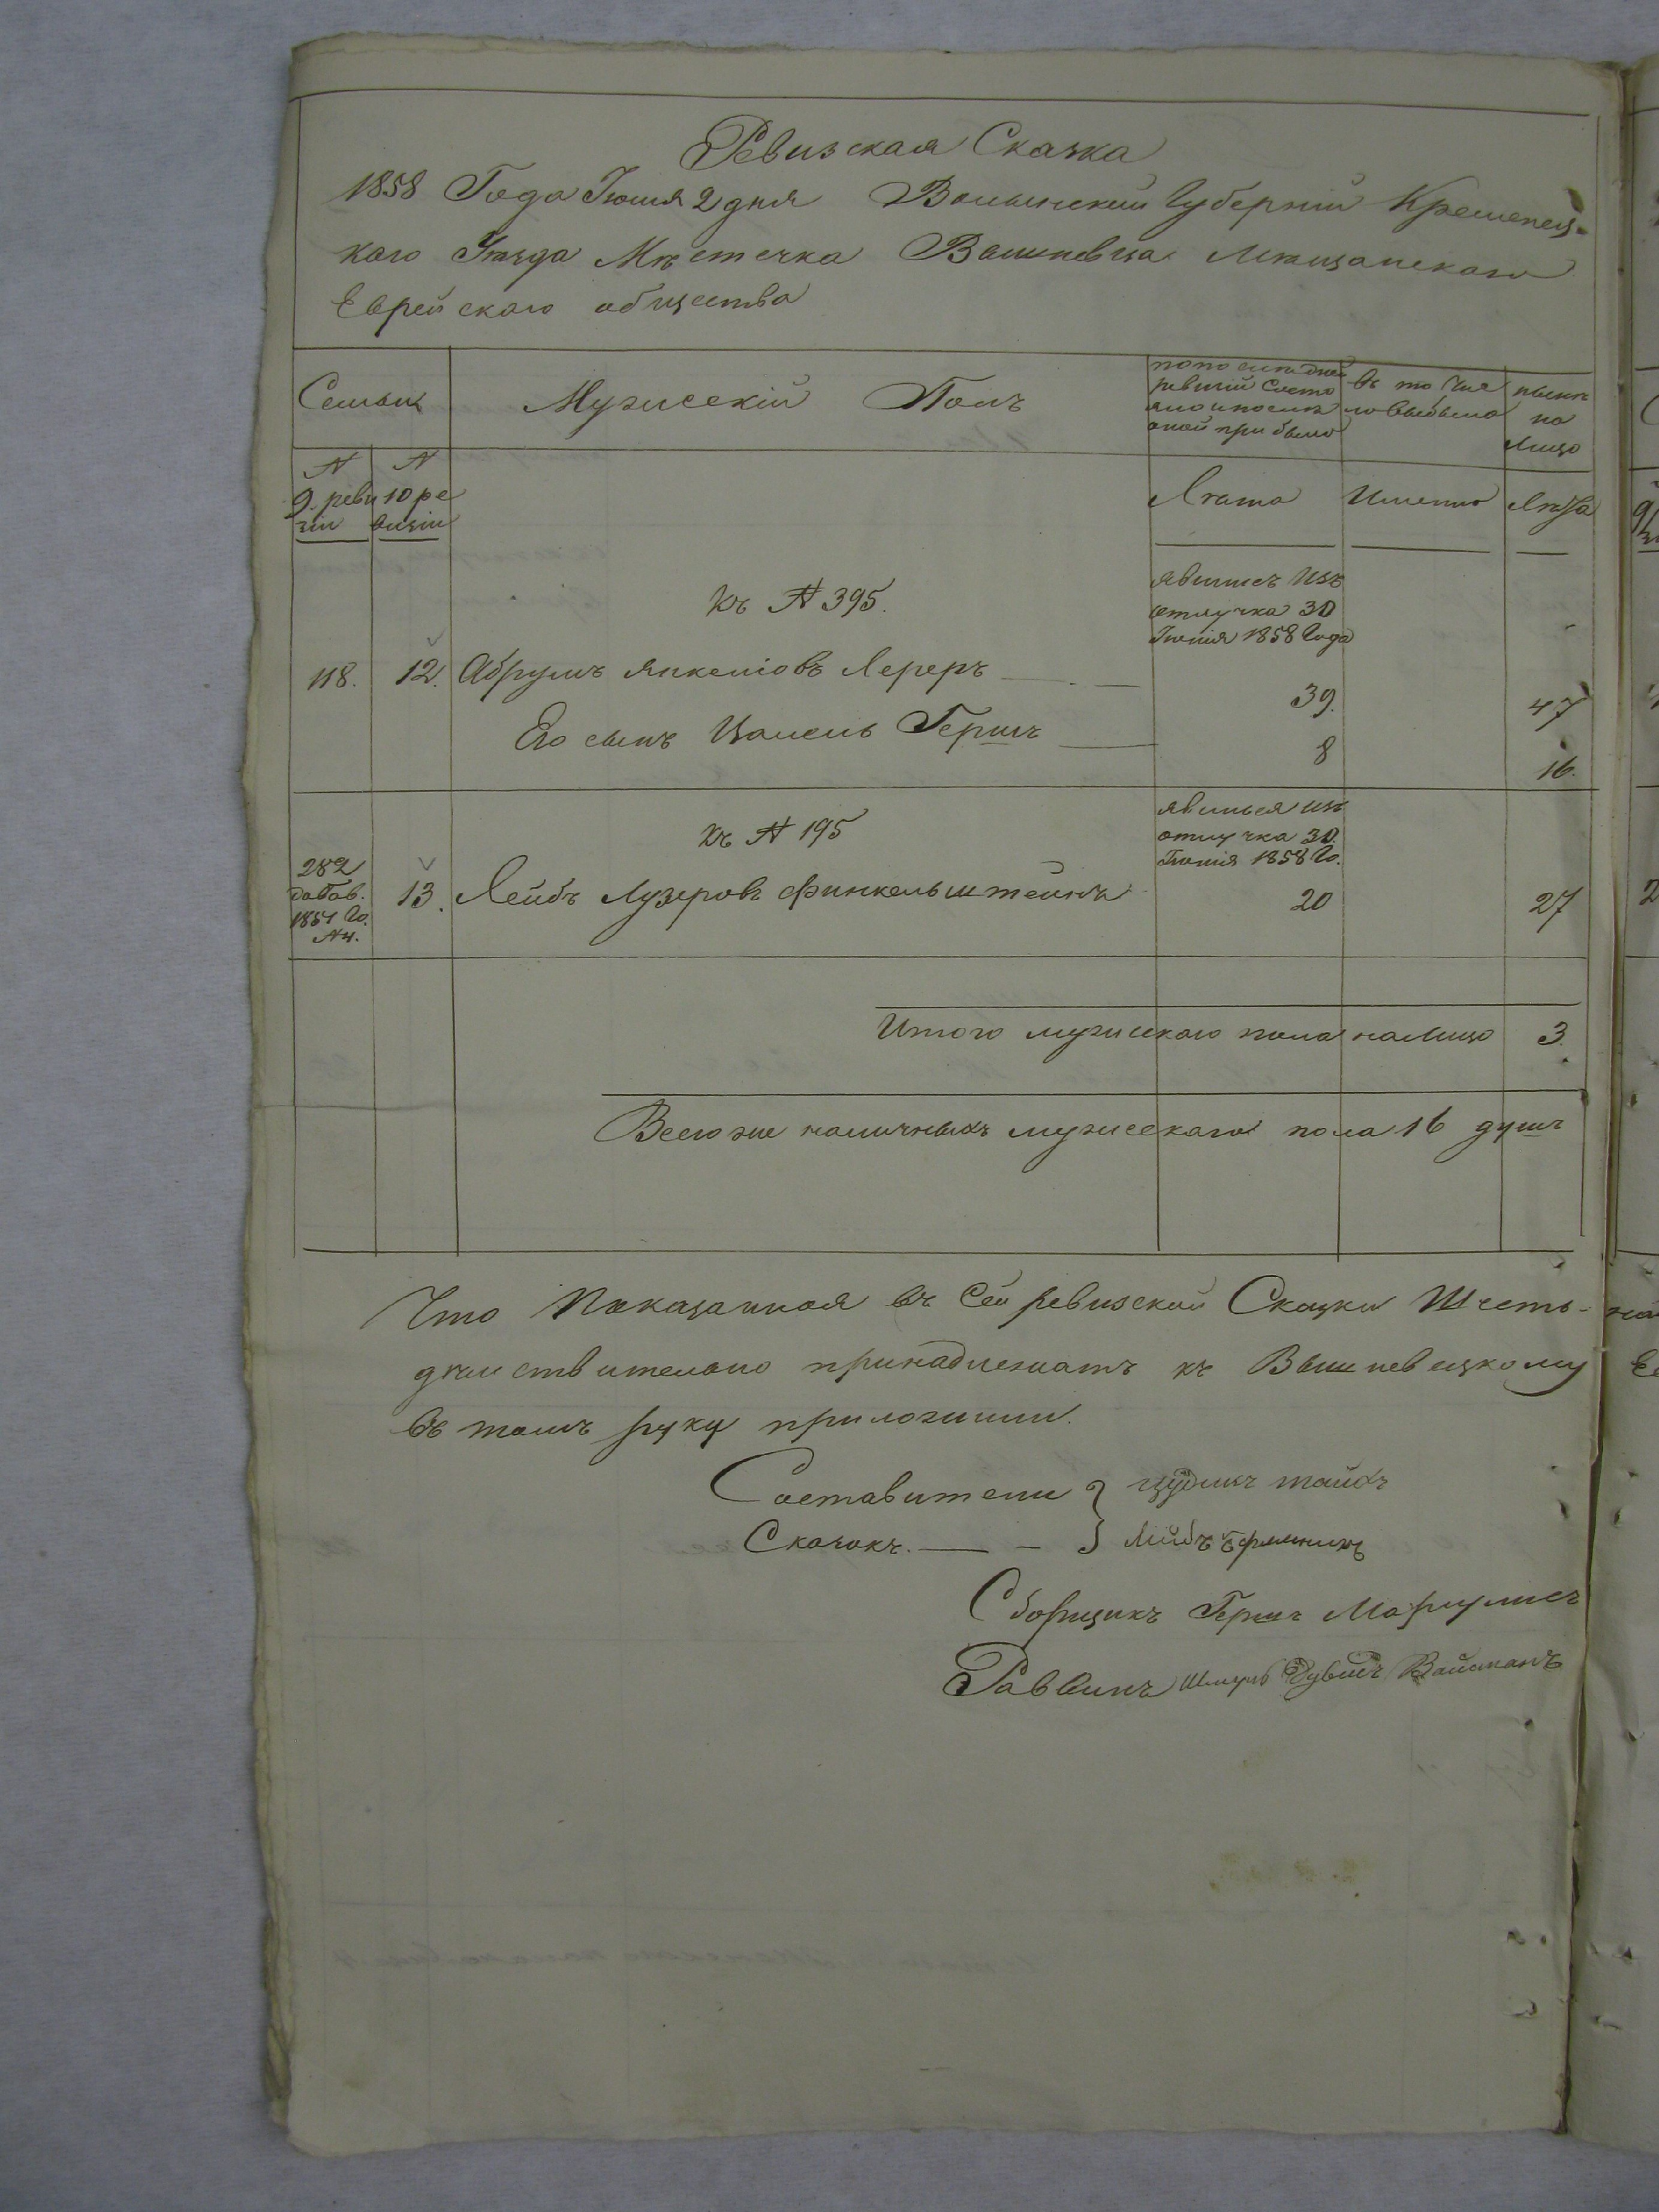 Ревизская Сказка
1858 Года Июля 2 дня Волынский Губерний Кременец-
каго Уѣзда Мѣстечка Вишневца Мѣщанскаго
Еврейскаго общества
Семьи
Мужескій Полъ
по последней
ревизіи Состо
яло и после
оной прибыло
въ то Чис
ло выбыло
ныне
на
лицо
N
9. реви
зіи
N
10 ре
визіи
Лѣта
Именно
Лѣта
къ N 395.
явился Изъ
отлучка 30
Июнія 1858 Года
118. 12. Абрумъ Янкеліовъ Лереръ 39. 47
Его сынъ Цалель Гершъ 8 16.
къ N 195
явилься изъ
отлучка 30.
Июнія 1858 Го.
282
добав.
1851 Го.
N 4.
13. Лейбъ Лузеровъ Финкельштейнъ 20 27
Итого мужескаго пола налицо 3.
Всего же наличныхъ мужескаго пола 16 душъ
Что Показанная въ Сей ревизской Сказки
дѣйствительно принадлежатъ къ Вишневецкому
въ томъ руку приложили.
Составители
Сказокъ. Лейбъ
Сборщикъ Гершъ Маргулисъ
Раввинъ Шмуль Вайсманъ